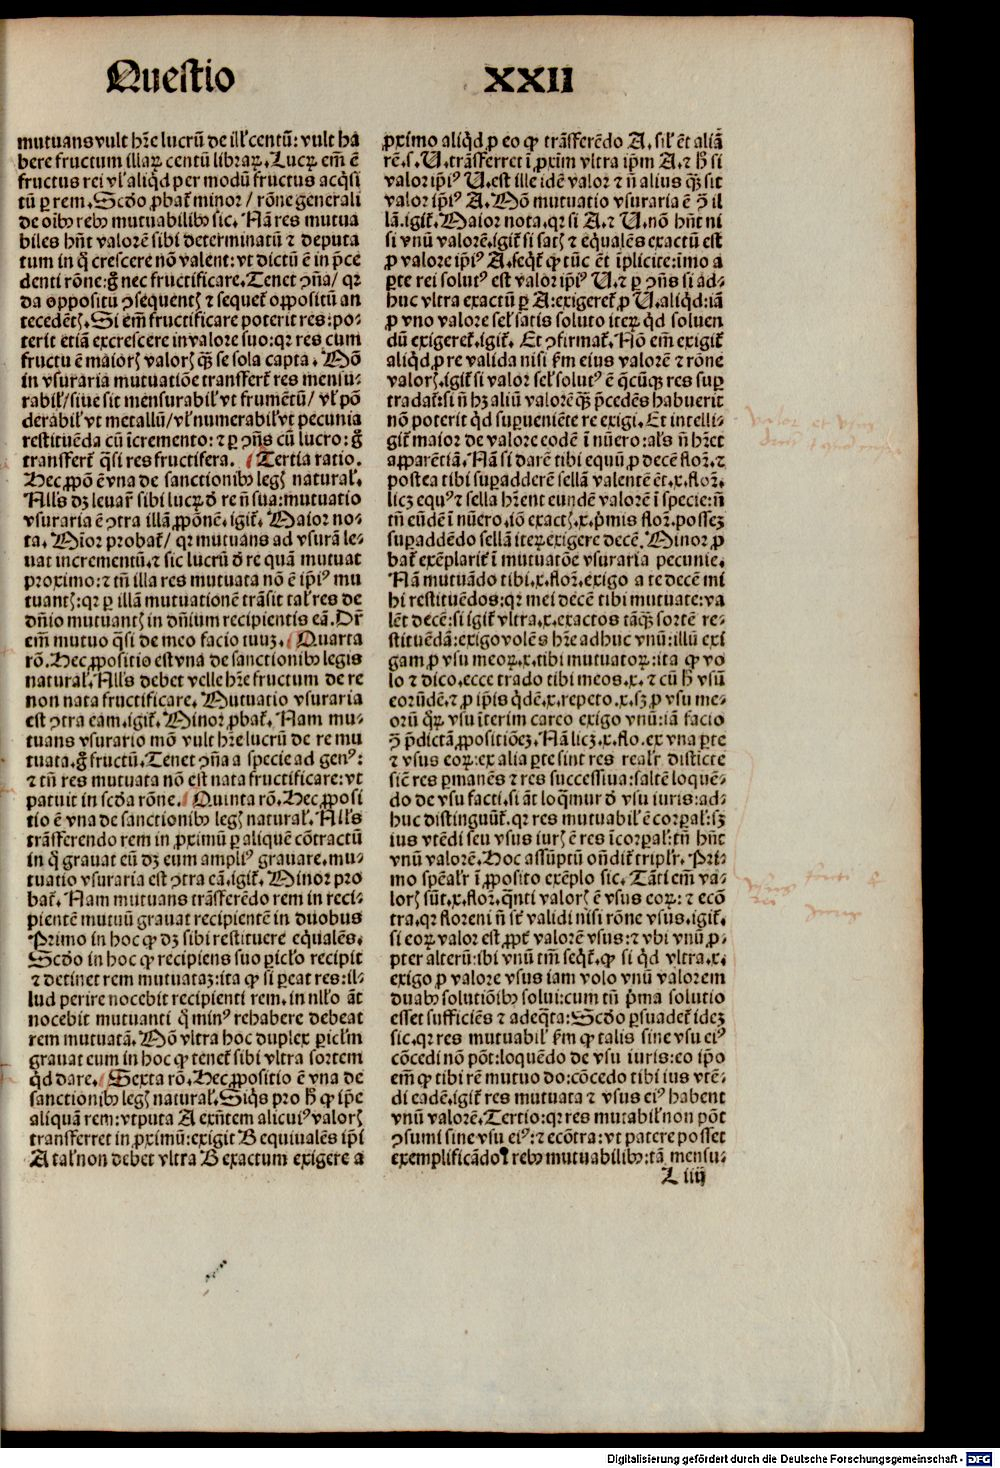 Questio XXII
mutuans vult hr̄e lucrū de ill' centū: vult ha
bere fructum illaꝝ centū libraꝝ. Lucꝝ em̄ ē
fructus rei vl' aliq̇d per modū fructus acq̇si
tū ꝑ rem. Scd̄o ꝓbat᷑ minor / rōne generali
de oībꝰ rebꝰ mutuabilibꝰ sic. Nā res mutua
biles hn̄t valorē sibi determinatū ⁊ deputa
tum in q̇ crescere nō valent: vt dictū ē in p̄ce
denti rōne: gͦ nec fructificare. Tenet ꝯn̄a / qꝛ
da oppositū ꝯsequentꝭ ⁊ sequet᷑ oppositū an
tecedētꝭ. Si em̄ fructificare poterit res: po⸗
terit etiā excrescere in valore suo: qꝛ res cum
fructu ē maiorꝭ valorꝭ q̄ꝫ se sola capta. Nō
in vsuraria mutuatiōe transffert᷑ res mensu⸗
rabil' / siue sit mensurabil' vt frumētū / vl' pō
derabil' vt metallū / vl' numerabil' vt pecunia
restituēda cū īcremento: ⁊ ꝑ ꝯn̄s cū lucro: gͦ
transffert᷑ q̄si res fructifera. Tertia ratio.
Hec ꝓpō ē vna de sanctionibꝰ legꝭ natural'.
Null's dꝫ leuar̄ sibi lucꝝ ď re n̄ sua: mutuatio
vsuraria ē ꝯtra illā ꝓpōnē. igit᷑. Maior no⸗
ta. Mīor probat᷑ / qꝛ mutuans ad vsurā le⸗
uat incrementū. ⁊ sic lucrū ď re quā mutuat
proximo: ⁊ tn̄ illa res mutuata nō ē ip̄iꝰ mu
tuantꝭ: qꝛ ꝑ illā mutuationē trāsit tal' res de
dn̄io mutuantꝭ in dn̄ium recipientis eā. Dr̄
em̄ mutuo q̄si de meo facio tuuꝫ. Quarta
rō. Hec ꝓpositio est vna de sanctionibꝰ legis
natural'. Null's debet velle hr̄e fructum de re
non nata fructificare. Mutuatio vsuraria
est ꝯtra eam. igit᷑. Minor ꝓbat᷑. Nam mu⸗
tuans vsurario mō vult hr̄e lucrū de re mu
tuata. gͦ fructū. Tenet ꝯn̄a a specie ad genꝰ:
⁊ tn̄ res mutuata nō est nata fructificare: vt
patuit in scd̄a rōne. Quinta rō. Hec ꝓposi
tio ē vna de sanctionibꝰ legꝭ natural'. Null's
trāsferendo rem in ꝓximū ꝑ aliquē cōtractū
in q̇ grauat eū dꝫ eum ampliꝰ grauare. mu⸗
tuatio vsuraria est ꝯtra eā. igit᷑. Minor pro
bat᷑. Nam mutuans trāsferēdo rem in reci⸗
pientē mutuū grauat recipientē in duobus
Primo in hoc ꝙ dꝫ sibi restituere eq̄ualēs.
Scd̄o in hoc ꝙ recipiens suo ꝑicl'o recipit
⁊ detinet rem mutuataꝫ: ita ꝙ si ꝑeat res: il⸗
lud perire nocebit recipienti rem. in nll'o āt
nocebit mutuanti q̇ minꝰ rehabere debeat
rem mutuatā. Nō vltra hoc duplex ꝑicl'm
grauat eum in hoc ꝙ tenet᷑ sibi vltra sortem
q̇d dare. Sexta rō. Hec ꝓpositio ē vna de
sanctionibꝰ legꝭ natural'. Siq̇s pro hͦ ꝙ ip̄e
aliquam rem: vtputa A exn̄tem alicuiꝰ valorꝭ
transfferret in ꝓximū: exigit B equiualēs ip̄i
A tal' non debet vltra B exactum exigere a
ꝓximo aliq̇d ꝓ eo ꝙ trāsfferēdo A. sil' ēt aliā
rē. s. U. trāsfferret ī ꝓxim̄ vltra ip̄m A. ⁊ hͦ si
valor ip̄iꝰ U. est ille idē valor ⁊ n̄ alius q̄ꝫ sit
valor ip̄iꝰ A. Nō mutuatio vsuraria ē ꝯ̄ il
lā. igit᷑. Maior nota. qꝛ si A. ⁊ U. nō hn̄t ni
si vnū valorē. igit᷑ si satꝭ ⁊ eq̄ualēs exactū est
ꝓ valore ip̄iꝰ A. seqt᷑ ꝙ tūc ēt īplicite: imo a
ꝑte rei solutꝰ est valor ip̄iꝰ U. ⁊ ꝑ ꝯn̄s si ad⸗
huc vltra exactū ꝑ A: exigeret᷑ ꝓ U. aliq̇d: iā
ꝓ vno valore sel' satis soluto iteꝝ q̇d soluen
dū exigeret᷑. igit᷑. Et ꝯfirmat᷑. Nō em̄ exigit᷑
aliq̇d ꝓ re valida nisi ẜm eius valorē ⁊ rōne
valorꝭ. igit᷑ si valor sel' solutꝰ ē q̄cūqꝫ res suꝑ
tradat᷑: si n̄ hꝫ aliū valorē q̄ꝫ p̄cedēs habuerit
nō poterit q̇d suꝑueniēte re exigi. Et intelli⸗
git᷑ maior de valore eodē ī nūero: al's n̄ hr̄et
apparētiā. Nā si darē tibi equū ꝓ decē flor̄. ⁊
postea tibi suꝑadderē sellā valentē ēt. x. flor̄.
licꝫ equꝰ ⁊ sella hr̄ent eundē valorē ī specie: n̄
tn̄ eūdē ī nūero. iō exactꝭ. x. p̄mis flor̄. possez
suꝑaddēdo sellā iteꝝ exigere decē. Minor ꝓ
bat᷑ exēplarit᷑ ī mutuatōe vsuraria pecunie.
Nā mutuādo tibi. x. flor̄. exigo a te decē mi
hi restituēdos: qꝛ mei decē tibi mutuate: va
lēt decē: si igit᷑ vltra. x. exactos tāq̄ꝫ sortē re⸗
stituēdā: exigo volēs hr̄e adhuc vnū: illū exi
gam ꝓ vsu meoꝝ. x. tibi mutuatoꝝ: ita ꝙ vo
lo ⁊ dico. ecce trado tibi meos. x. ⁊ cū hͦ vsū
eorūdē. ⁊ ꝓ ip̄is q̇dē. x. repeto. x. sꝫ ꝓ vsu me⸗
orū q̇ꝝ vsu īterim careo exigo vnū: iā facio
ꝯ̄ p̄dictā ꝓpositiōeꝫ. Nā licꝫ. x. flo. ex vna ꝑte
⁊ vsus eoꝝ: ex alia ꝑte sint res real'r disticte
sic̄ res ꝑmanēs ⁊ res successiua: saltē loquē⸗
do de vsu facti. si āt loq̄mur ď vsu iuris: ad⸗
huc distinguūt᷑. qꝛ res mutuabil' ē corꝑal': sꝫ
ius vtēdi seu vsus iurꝭ ē res īcorꝑal': tn̄ hn̄t
vnū valorē. Hoc assūptū on̄dit᷑ tripl'r. Pri⸗
mo spēal'r ī ꝓposito exēplo sic. Tāti em̄ va⸗
lorꝭ sūt. x. flor̄. q̄nti valorꝭ ē vsus eoꝝ: ⁊ ecō
tra. qꝛ floreni n̄ st̄ validi nisi rōne vsus. igit᷑.
si eoꝝ valor est ꝓpt̄ valorē vsus: ⁊ vbi vnū ꝓ⸗
pter alterū: ibi vnū tm̄ seqt᷑. ꝙ si q̇d vltra. x.
exigo ꝓ valore vsus iam volo vnū valorem
duabꝰ solutiōibꝰ solui: cum tn̄ p̄ma solutio
esset sufficiēs ⁊ adeq̄ta: Scd̄o ꝑsuadet᷑ ideꝫ
sic. qꝛ res mutuabil' ẜm ꝙ talis sine vsu eiꝰ
cōcedi nō pōt: loquēdo de vsu iuris: eo ip̄o
em̄ ꝙ tibi rē mutuo do: cōcedo tibi ius vtē⸗
di eadē. igit᷑ res mutuata ⁊ vsus eiꝰ habent
vnū valorē. Tertio: qꝛ res mutabil' non pōt
ꝯsumi sine vsu eiꝰ: ⁊ ecōtra: vt patere posset
exemplificādo ī rebꝰ mutuabilibꝰ: tā mensu⸗
L iiij
valor et vsus
Digitalisierung gefördert durch die Deutsche Forschungsgemeinschaft - DFG